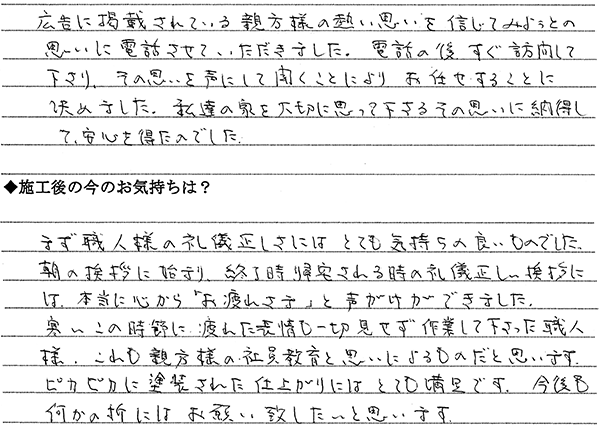 広告に掲載されている親方様の熱い思いを信じてみようとの
思いに電話させていただきました。電話の後すぐ訪問して
下さり、その思いを声にして聞くことによりお任せすることに
決めました。私達の家を大切に思って下さるその思いに納得し
て、安心を得たのでした。
◆施工後の今のお気持ちは？
まず職人様の礼儀正しさにはとても気持ちの良いものでした。
朝の挨拶に始まり、終了時帰宅される時の礼儀正しい挨拶に
は、本当に心から「お疲れさま」と声がけができました。
寒いこの時節に疲れた表情も一切見せず作業して下さった職人
様、これも親方様の社員教育と思いによるものだと思います。
ピカピカに塗装された仕上がりにはとても満足です。今後も
何かの折にはお願い致したいと思います。